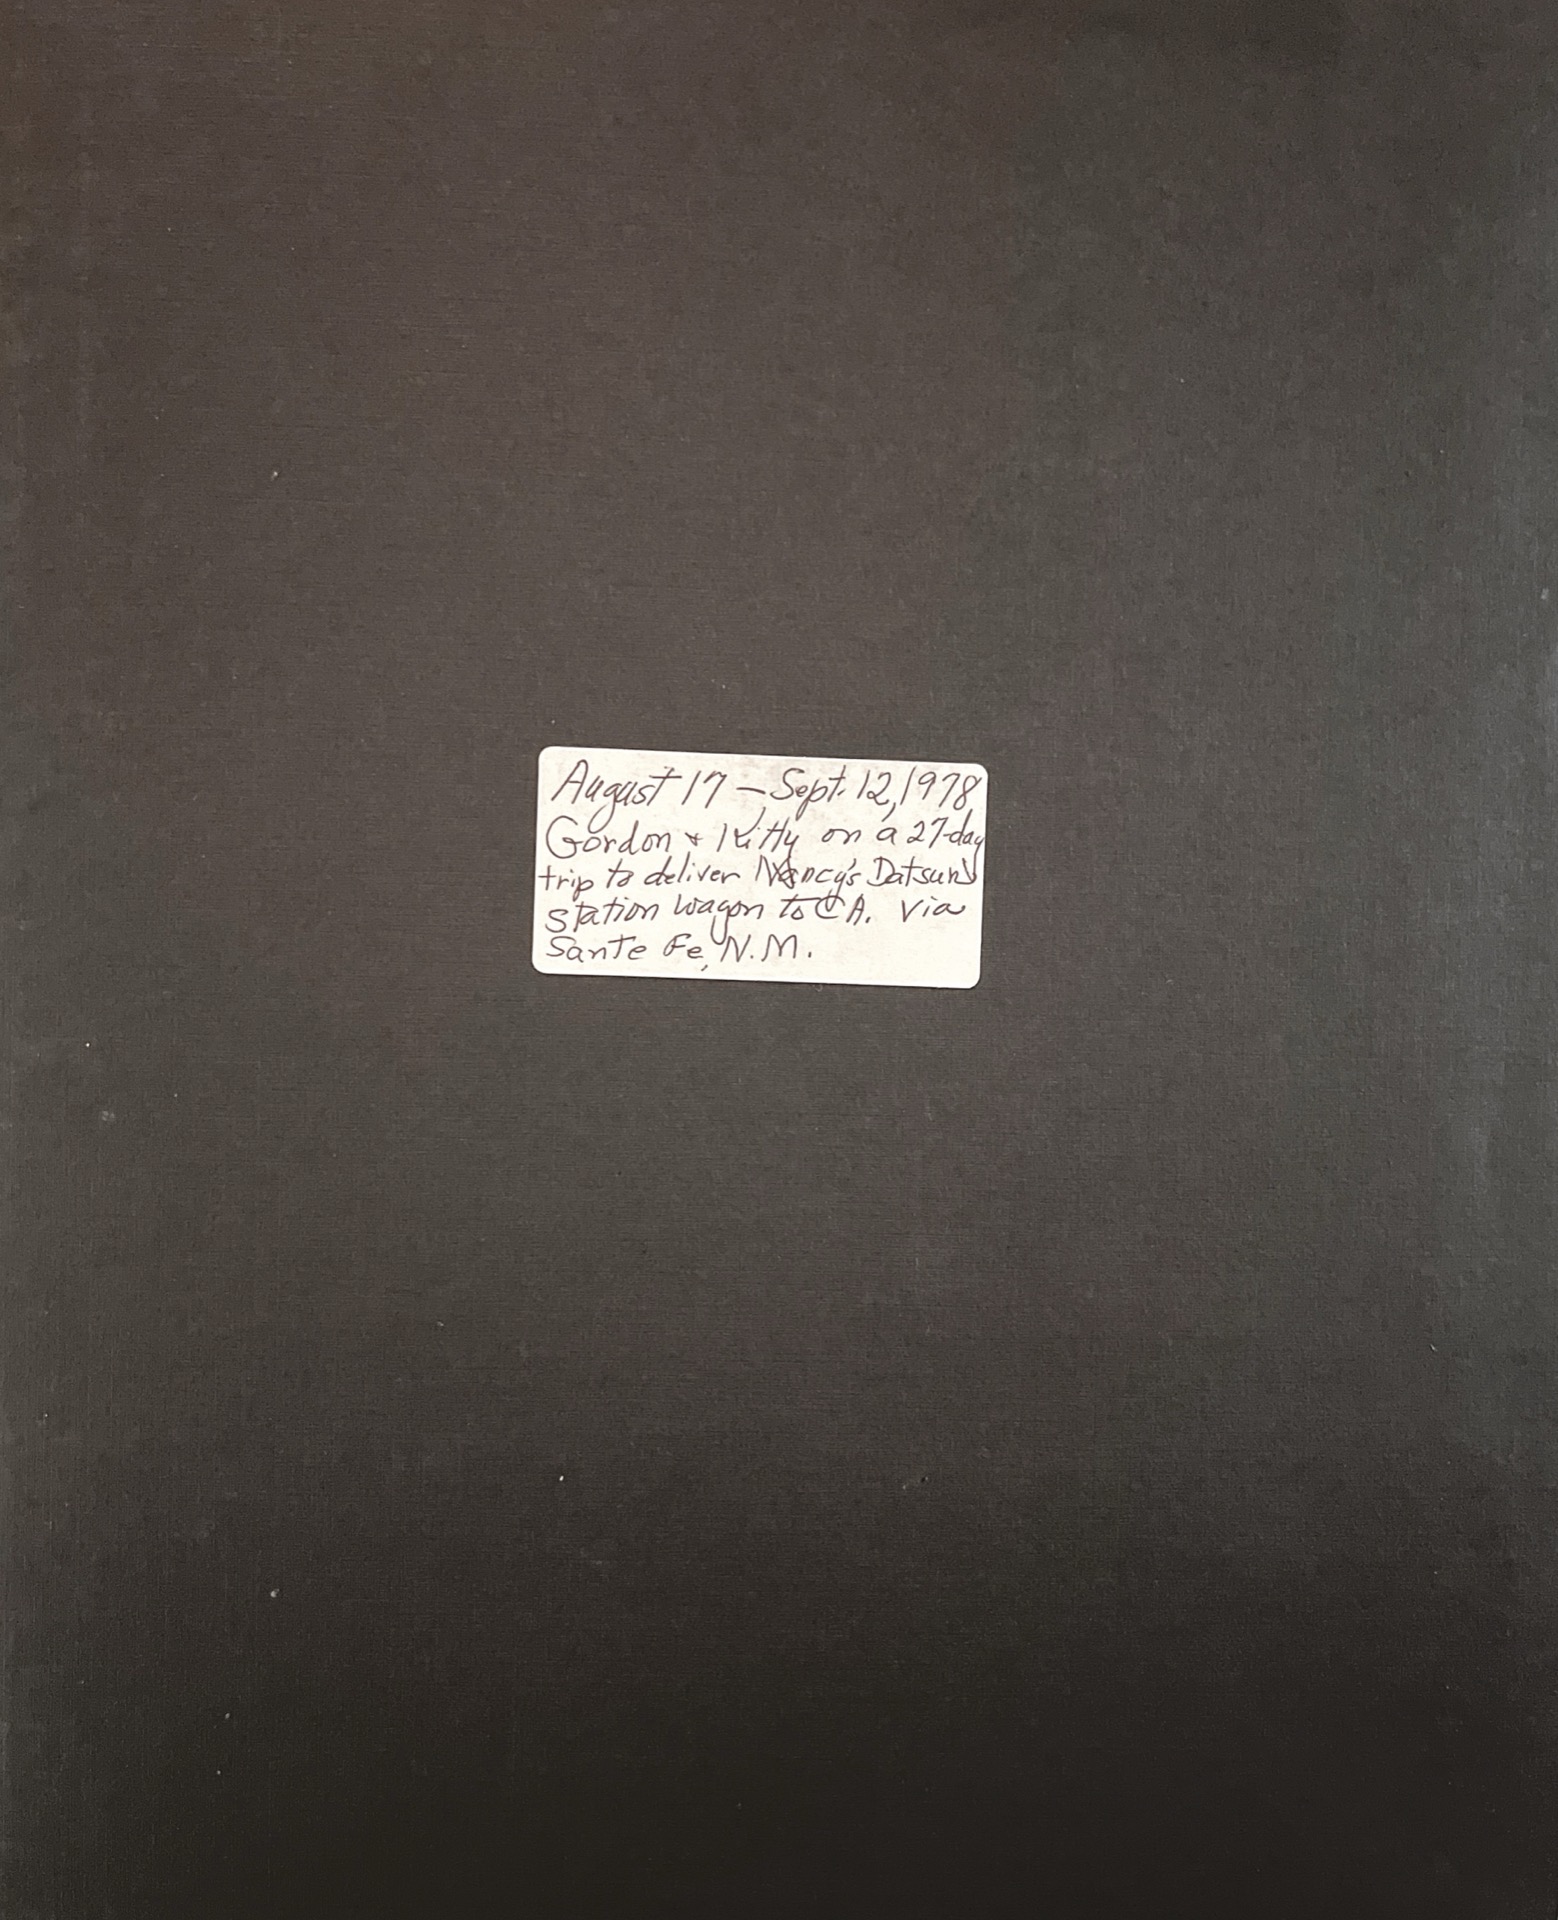 August 17 – Sept. 12, 1978
Gordon + Kitty on a 27-day
trip to deliver Nancy's Datsun
station wagon to CA. via
Sante Fe, N.M.